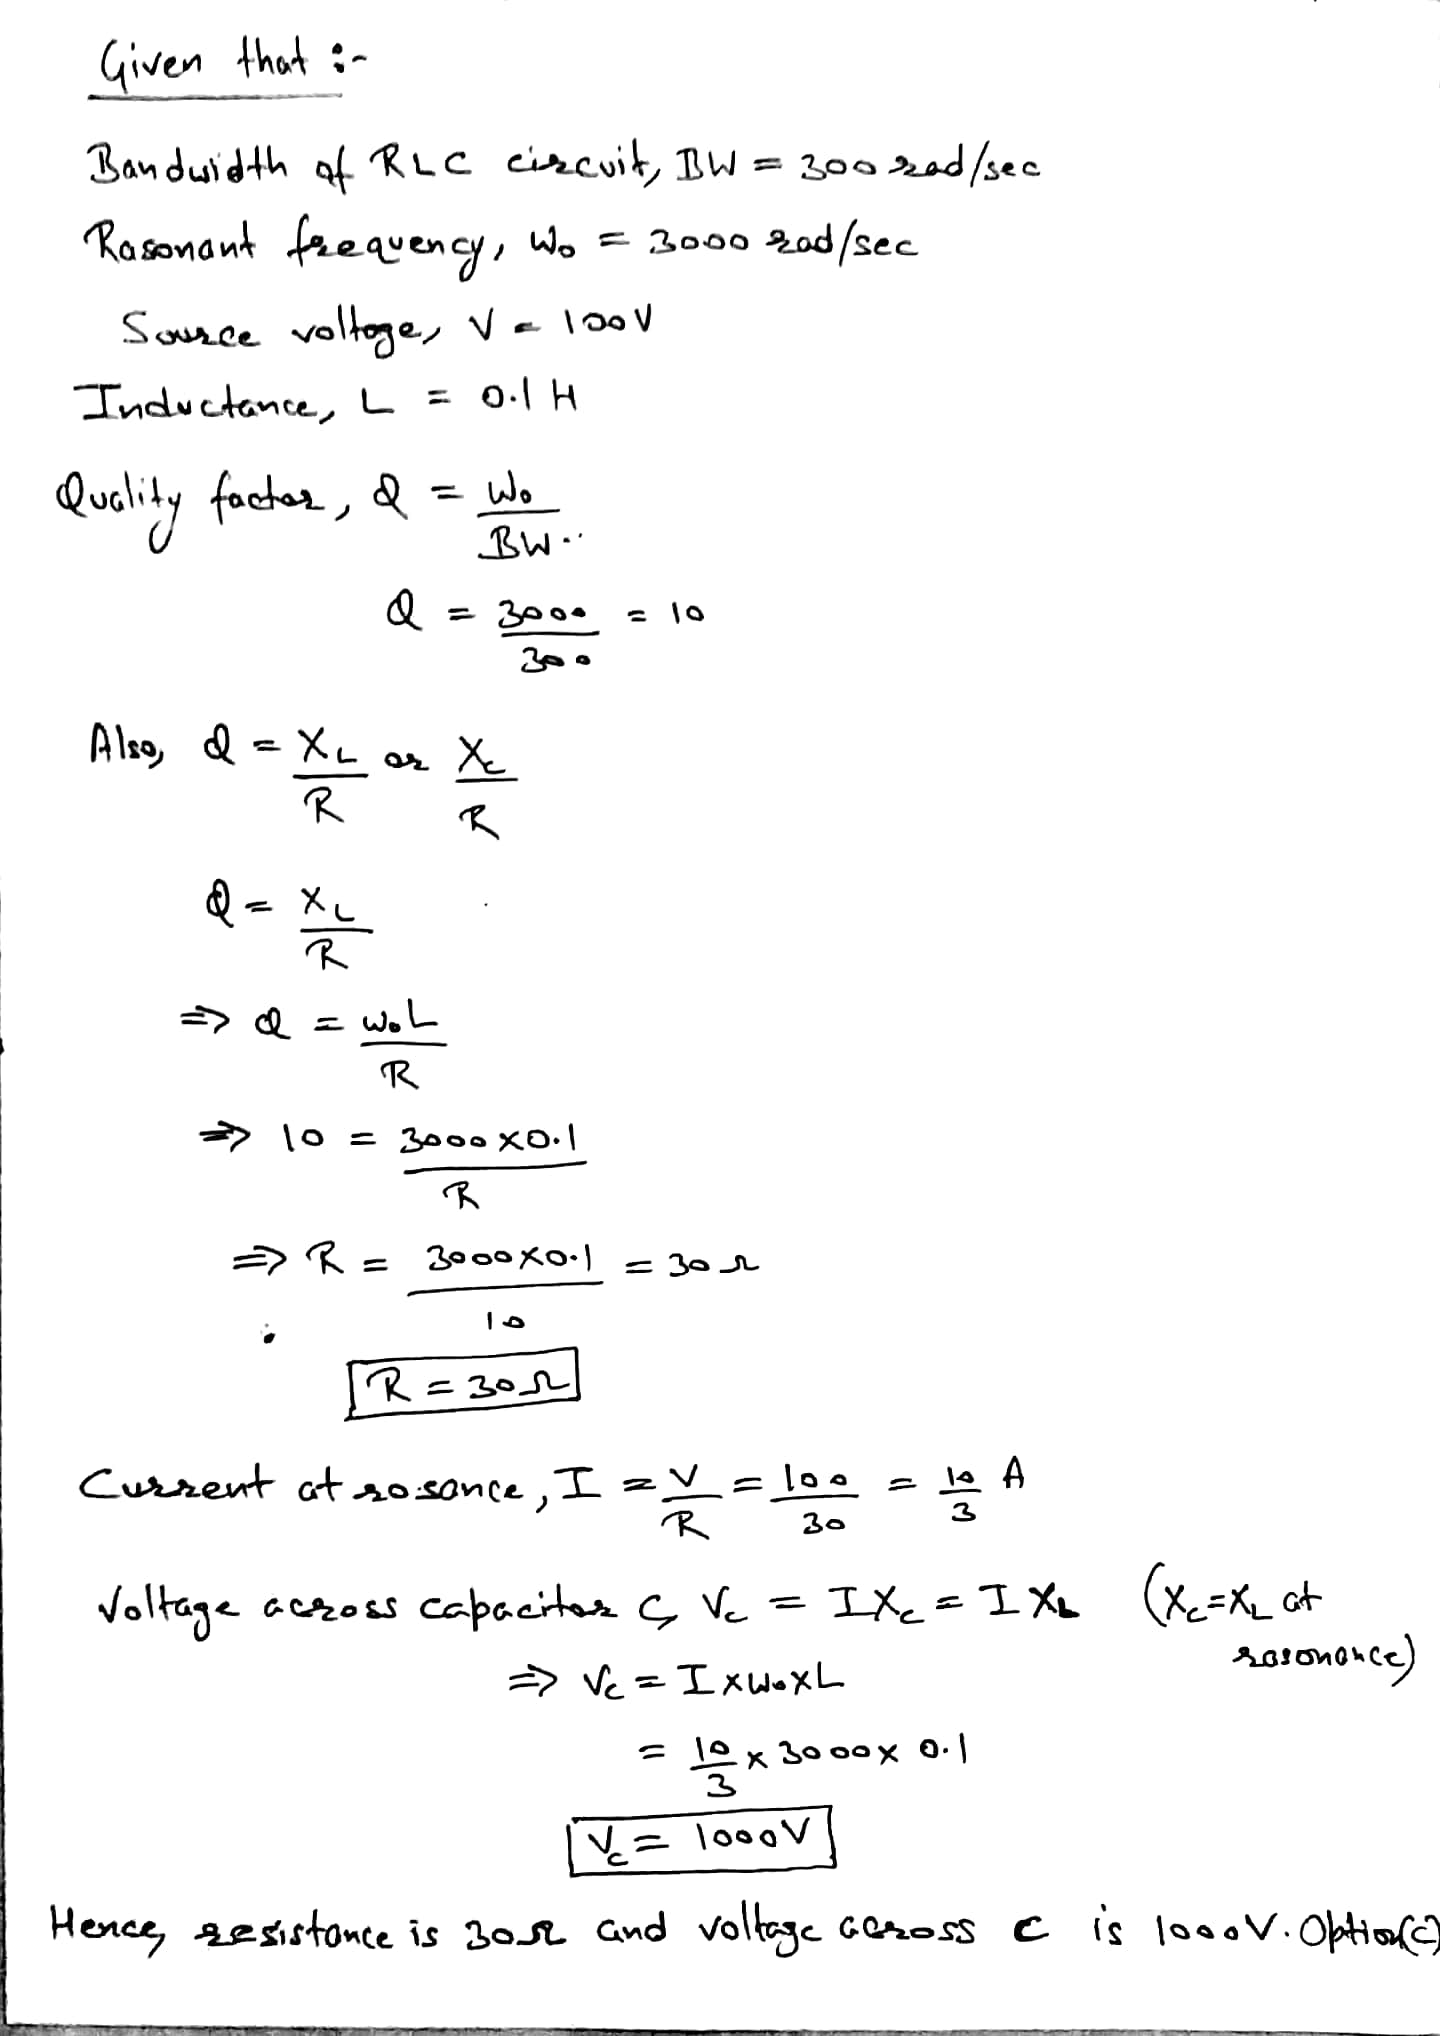 Given that :-
Bandwidth of RLC circuit, BW = 300 rad/sec
Rasonant frequency, W₀ = 3000 rad/sec
Source voltage, V = 100V
Inductance, L = 0.1 H
Quality factor, Q = W₀/BW
Q = 3000/300 = 10
Also, Q = X_L/R or X_C/R
Q = X_L/R
=> Q = W₀L/R
=> 10 = 3000×0.1/R
=> R = 3000×0.1/10 = 30 Ω
R = 30Ω
Current at rosance, I = V/R = 100/30 = 10/3 A
Voltage across capacitor C, V_C = IX_C = I X_L (X_C=X_L at
rasonance)
=> V_C = I×W₀×L
= 10/3 × 3000× 0.1
V_C = 1000V
Hence, resistance is 30Ω and voltage across C is 1000V. Option(C)